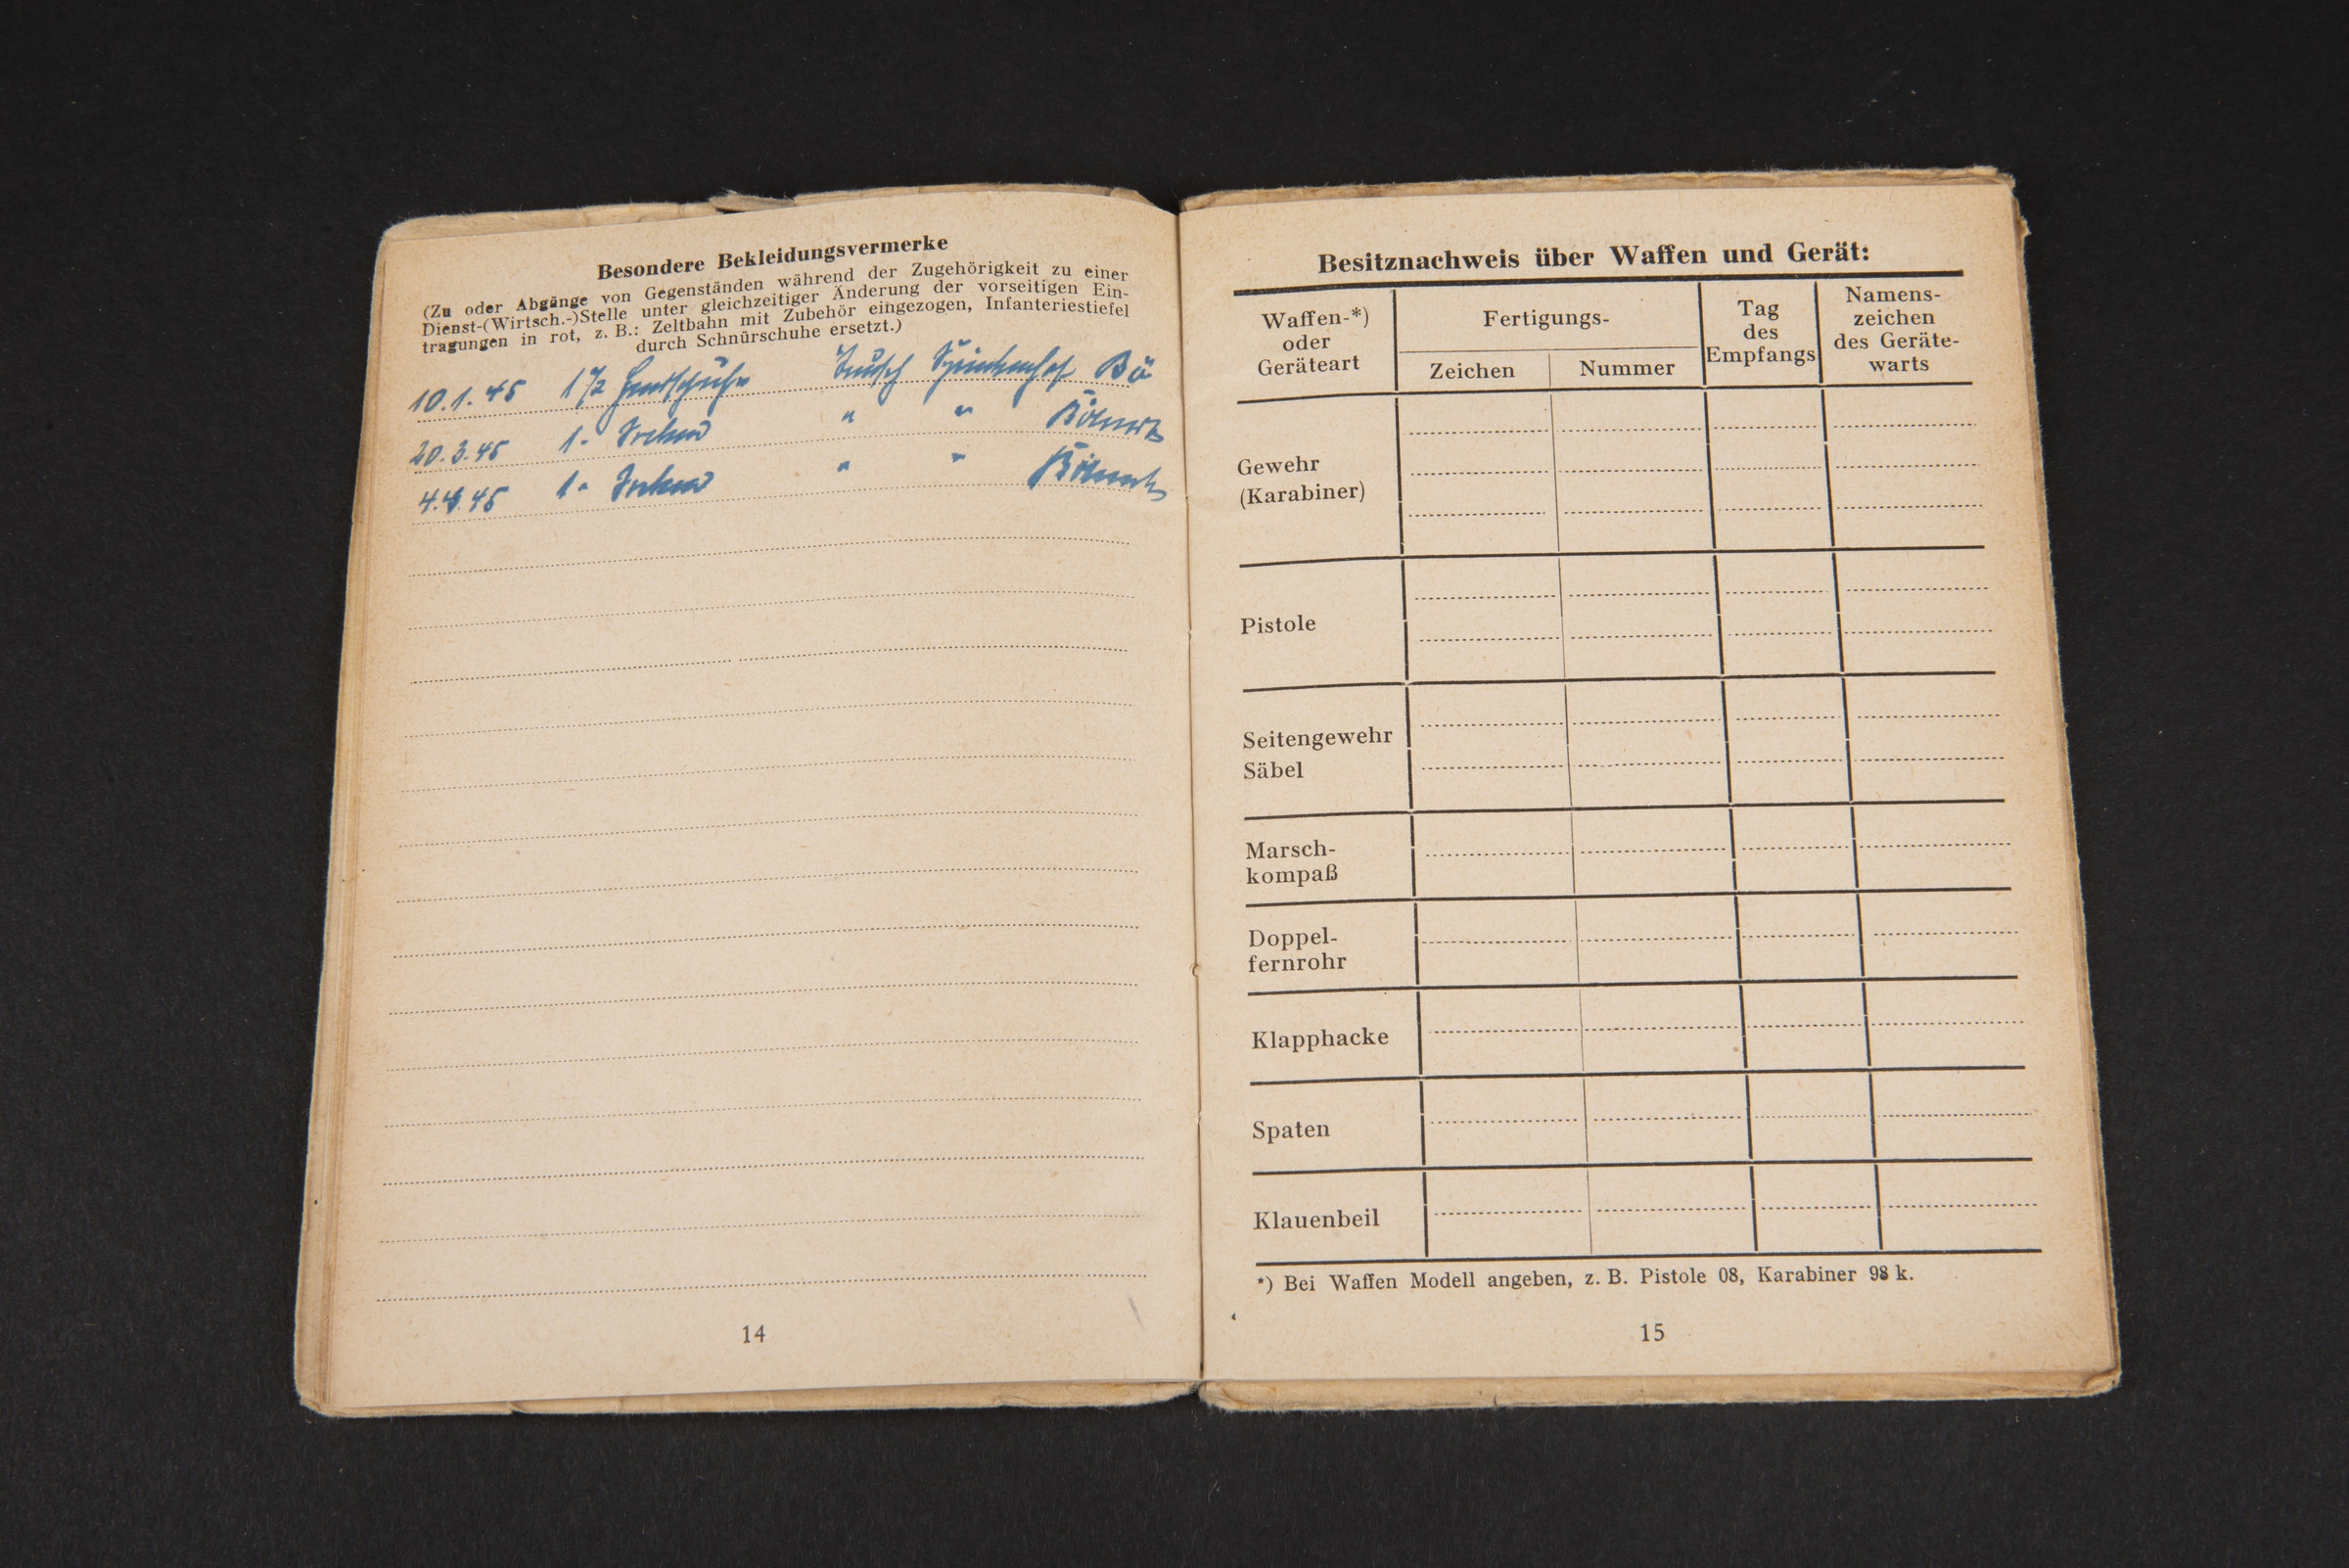 Besondere Bekleidungsvermerke
(Zu oder Abgänge von Gegenständen während der Zugehörigkeit zu einer
Dienst-(Wirtsch.-)Stelle unter gleichzeitiger Änderung der vorseitigen Ein-
tragungen in rot, z. B.: Zeltbahn mit Zubehör eingezogen, Infanteriestiefel
durch Schnürschuhe ersetzt.)
10.1.45 1 Handschuhe Bö
20.3.45 1 " "
4.4.45 1 " "
14
Besitznachweis über Waffen und Gerät:
Waffen-*)
oder
Geräteart
Fertigungs-
Zeichen
Nummer
Tag
des
Empfangs
Namens-
zeichen
des Geräte-
warts
Gewehr
(Karabiner)
Pistole
Seitengewehr
Säbel
Marsch-
kompaß
Doppel-
fernrohr
Klapphacke
Spaten
Klauenbeil
*) Bei Waffen Modell angeben, z. B. Pistole 08, Karabiner 98 k.
15